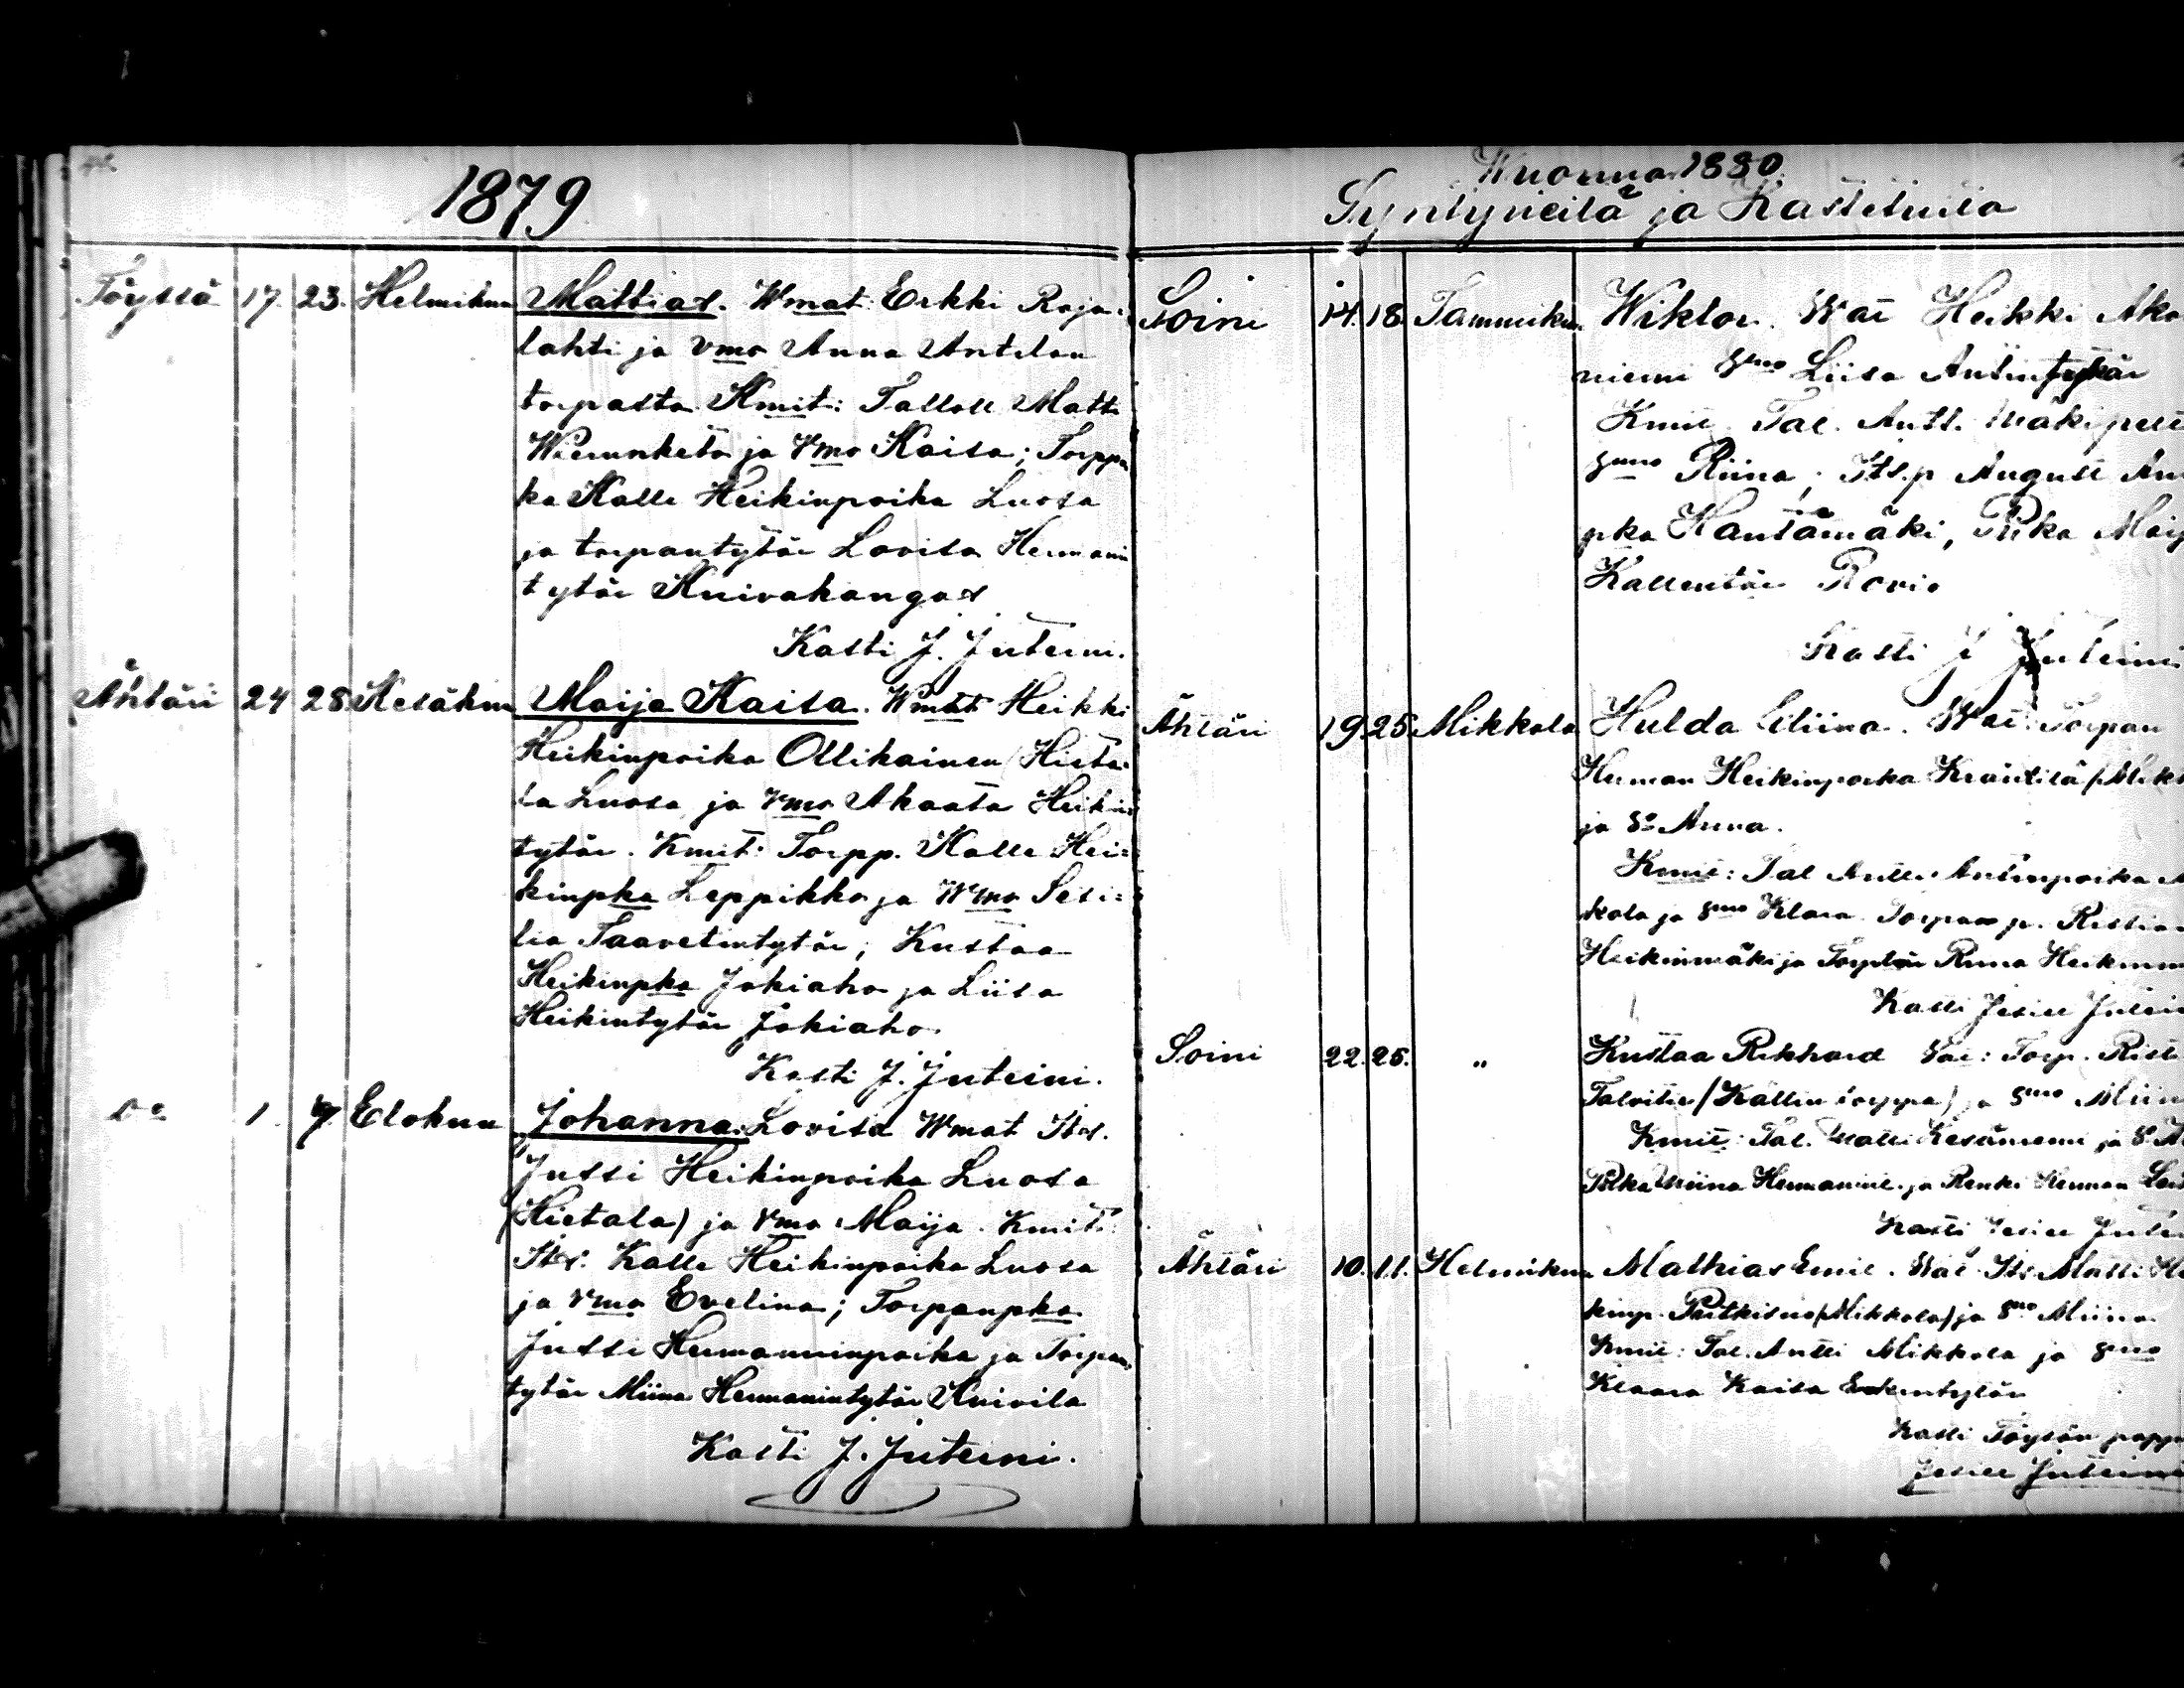 1879
Töyssä 17. 23. Helmikuu Mattias. Wmat: Erkki Raja-
lahti ja vmo Anna Antilan
torpasta. Kmit: Talloll. Matti
ja Vmo Kaisa; Torppa
ka Kalle Heikinpoika Luosa
ja torpantytär Lovisa Hermanin
tytär Knivakangas
Kasti J. Juteini.
Ähtäri 24 28 Kesäkuu Maija Kaisa. Wmat Heikki
Heikinpoika Ollikainen (Hieta-
la Luosa ja Vmo Akaata Heikin
tytär. Kmit: Torpp. Kalle Hei=
kinpka Leppikko ja Wmo Sesi=
lia Taavetintytär; Kustaa
Heikinpka Jokiaho ja Liisa
Heikintytär Jokiaho.
Kasti J. Juteini.
Do 1. 7 Elokuu Johanna Lovisa Wmat Its.
Jussi Heikinpoika Luosa
(Hietala) ja Vmo Maija. Kmit:
Its: Kalle Heikinpoika Luosa
ja Vmo Evelina; Torpanpka
Jussi Hermanninpoika ja Torpan
tytär Miina Hermanintytär Knivila
Kasti J. Juteini.
Wuonna 1880
Syntyneitä ja Kastetuita
Soini 14. 18. Tammikuu Wiktor. Wat Heikki Aka
niemi Vmo Liisa Antintytär
Kmit. Tal. Antt. Mäkipelt
Vmo Riina; Its.p August An
pka Hautamäki, Piika Maij
Kallentär Rovio
Kasti J Juteini
Ähtäri 19. 25. Mikkola Hulda Eliina. Wat: Torpan
Herman Heikinpoika Kräntilä (Mikk
ja Vo Anna.
Kmit: Tal Antti Antinpoika M
kola ja Vmo Klara Torpan p. Ristian
Heikinmäki ja Torptär Riina Heikinm
Kasti Juteini
Soini 22. 25. " Kustaa Rikhard Vat: Torp. Risti
Talvitie (Kallin torppa) ja Vmo Miin
Kmit: Tal. Matti Kesäniemi ja V
Piika Miina Hermanint. ja Renki Herman
Kasti Jute
Ähtäri 10. 11. Helmikuu Mathias Emil. Wat Its Matti He
kinp. Pitkäsuo (Mikkola) ja Vmo Miina.
Kmit: Tal. Antti Mikkola ja Vmo
Klaara Kaisa Erkintytär
Kasti Töysän pappi
Juteini